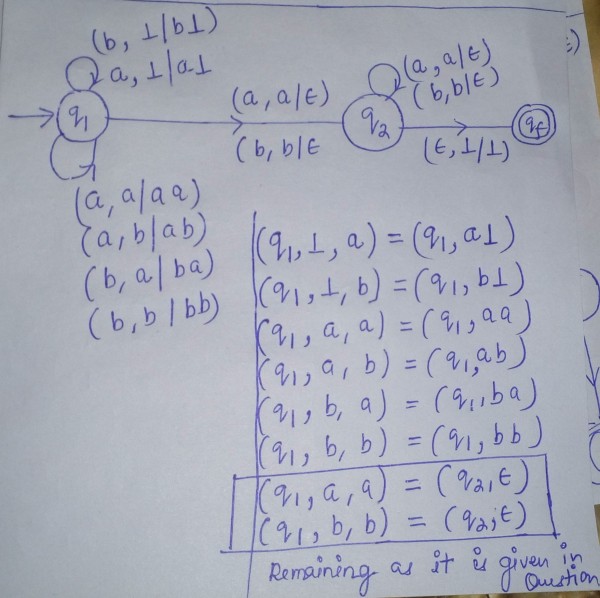 (b, ⊥|b⊥)
a, ⊥|a⊥
q1
(a, a|ϵ)
(b, b|ϵ
q2
(a, a|ϵ)
(b, b|ϵ)
(ϵ, ⊥|⊥)
qf
(a, a|aa)
(a, b|ab)
(b, a|ba)
(b, b|bb)
(q1, ⊥, a) = (q1, a⊥)
(q1, ⊥, b) = (q1, b⊥)
(q1, a, a) = (q1, aa)
(q1, a, b) = (q1, ab)
(q1, b, a) = (q1, ba)
(q1, b, b) = (q1, bb)
(q1, a, a) = (q2, ϵ)
(q1, b, b) = (q2, ϵ)
Remaining as it is given in
Question